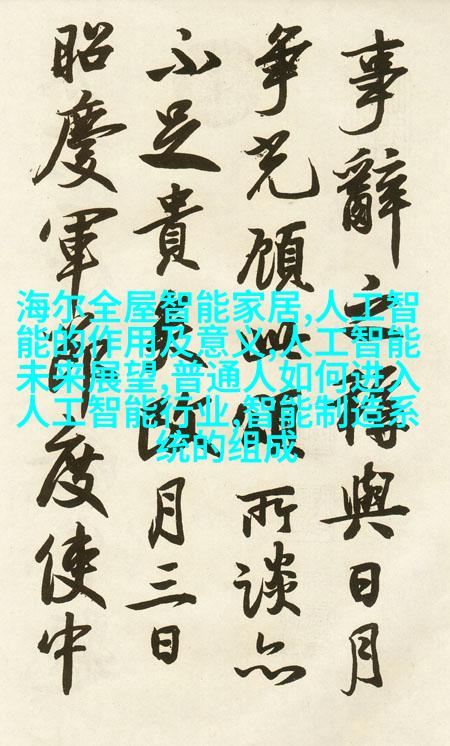 事辭之與日月
争光顧所談亦
不足貴月三日
昭慶軍節度使中
海尔全屋智能家居,人工智
能的作用及意义,人工智能
未来展望,普通人如何进入
人工智能行业,智能制造系
统的组成